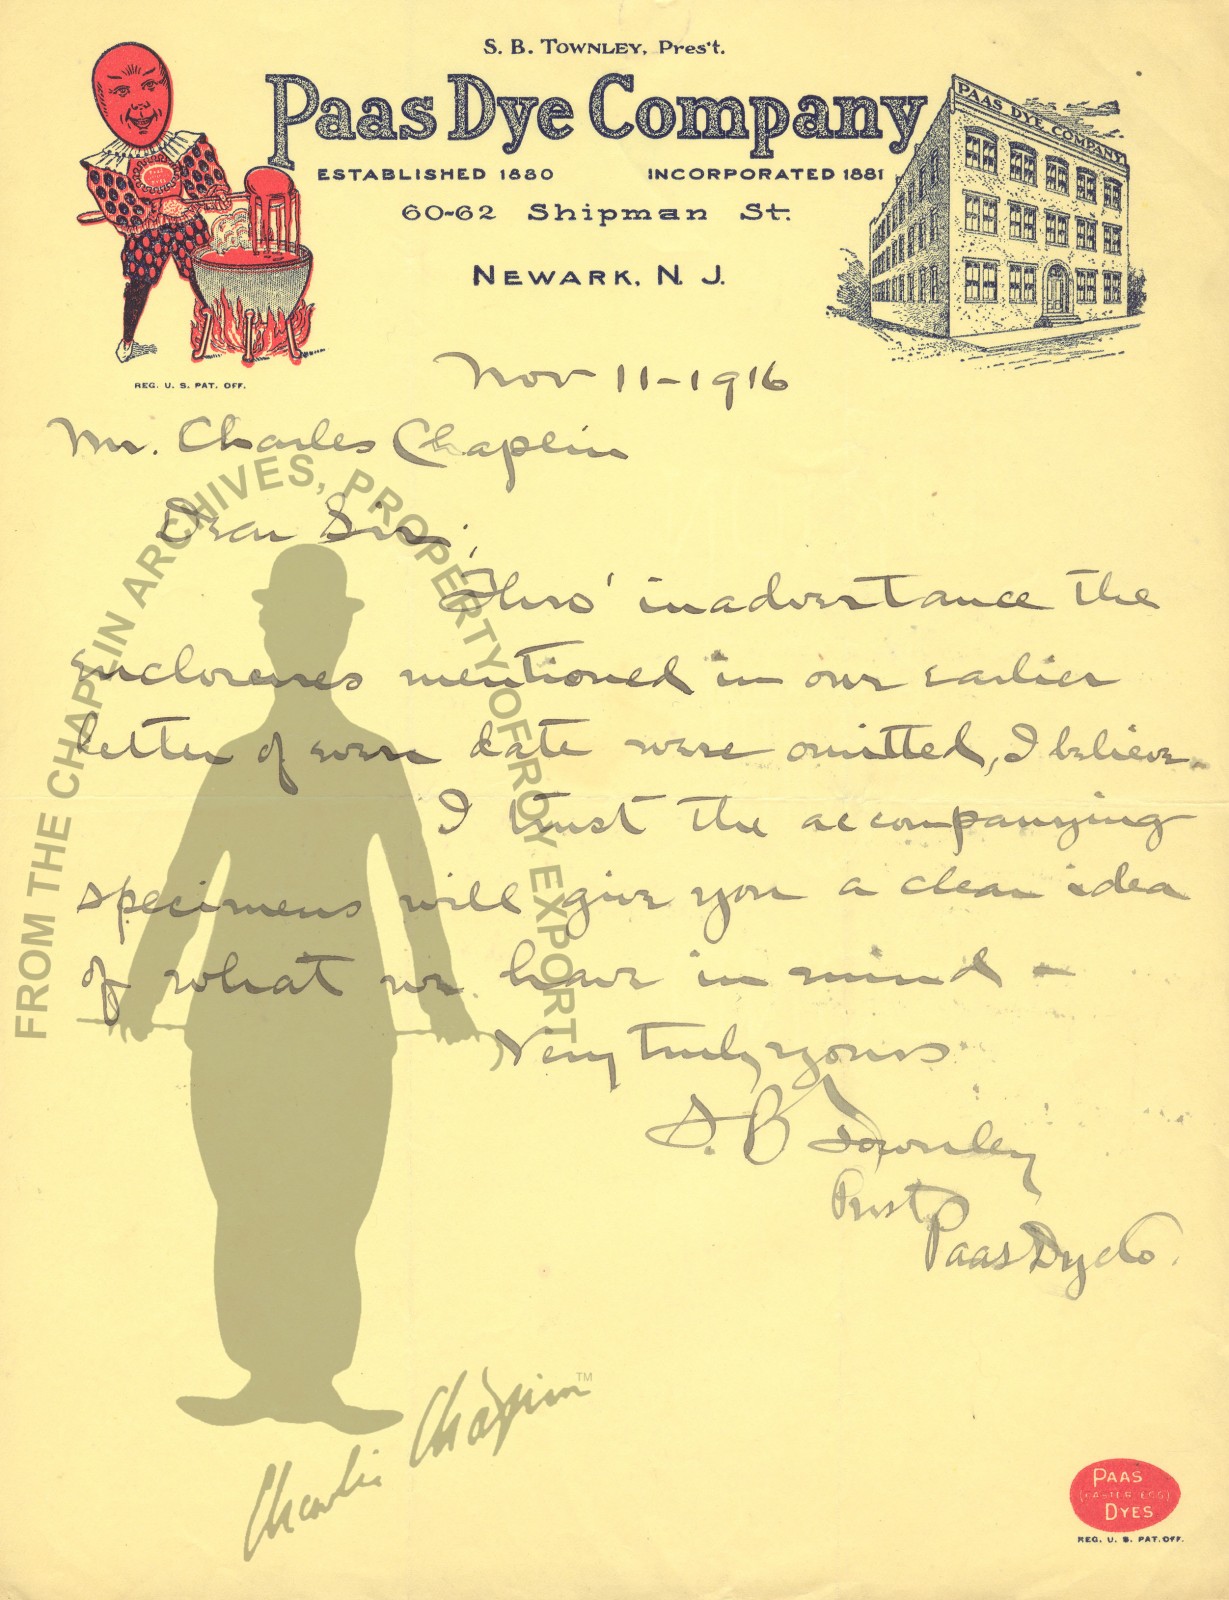 S. B. TOWNLEY, Pres't.
Paas Dye Company
ESTABLISHED 1880 INCORPORATED 1881
60-62 Shipman St.
NEWARK, N. J.
PAAS DYE COMPANY
REG. U. S. PAT. OFF.
Nov 11-1916
Mr. Charles Chaplin
Dear Sir,
Thro' inadvertance the
inclosures mentioned in our earlier
letter of even date were omitted, I believe.
I trust the accompanying
specimens will give you a clear idea
of what we have in mind -
Very truly yours
S. B Townley
Prest
Paas Dye Co.
FROM THE CHAPLIN ARCHIVES, PROPERTY OF ROY EXPORT
Charlie Chaplin TM
PAAS
(EASTER EGG)
DYES
REG. U. S. PAT. OFF.